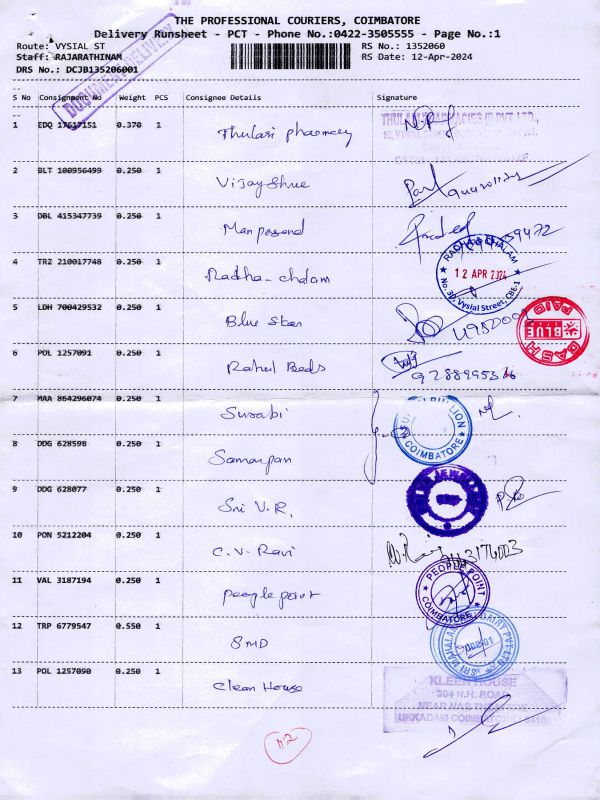 THE PROFESSIONAL COURIERS, COIMBATORE
Delivery Runsheet - PCT - Phone No.:0422-3505555 - Page No.:1
Route: VYSIAL ST RS No.: 1352060
Staff: RAJARATHINAM RS Date: 12-Apr-2024
DRS No.: DCJB135206001
DOCUMENT DELIVERY
S No Consignment No Weight PCS Consignee Details Signature
1 EDQ 17617151 0.370 1 Thulasi pharmacy
2 BLT 100956499 0.250 1 Vijay Shree
3 DBL 415347739 0.250 1 Manpasand
4 TRZ 210017748 0.250 1 Radha-chalam
RADHA CHALAM
12 APR 2024
No. 30, Vysial Street, CBE-1
5 LDH 700429532 0.250 1 Blue Star
BLUE
DASH
PAID
6 POL 1257091 0.250 1 Rahul Beds
7 MAA 864296074 0.250 1 Surabi
COIMBATORE
8 DDG 628598 0.250 1 Samarpan
9 DDG 628077 0.250 1 Sri V.R.
10 PON 5212204 0.250 1 C.V. Ravi
11 VAL 3187194 0.250 1 people point
PEOPLE POINT
COIMBATORE
12 TRP 6779547 0.550 1 SMD
13 POL 1257090 0.250 1 Clean House
KLEEN HOUSE
304 N.H. ROAD
NEAR NAS THEATRE
UKKADAM COIMBATORE - 641001